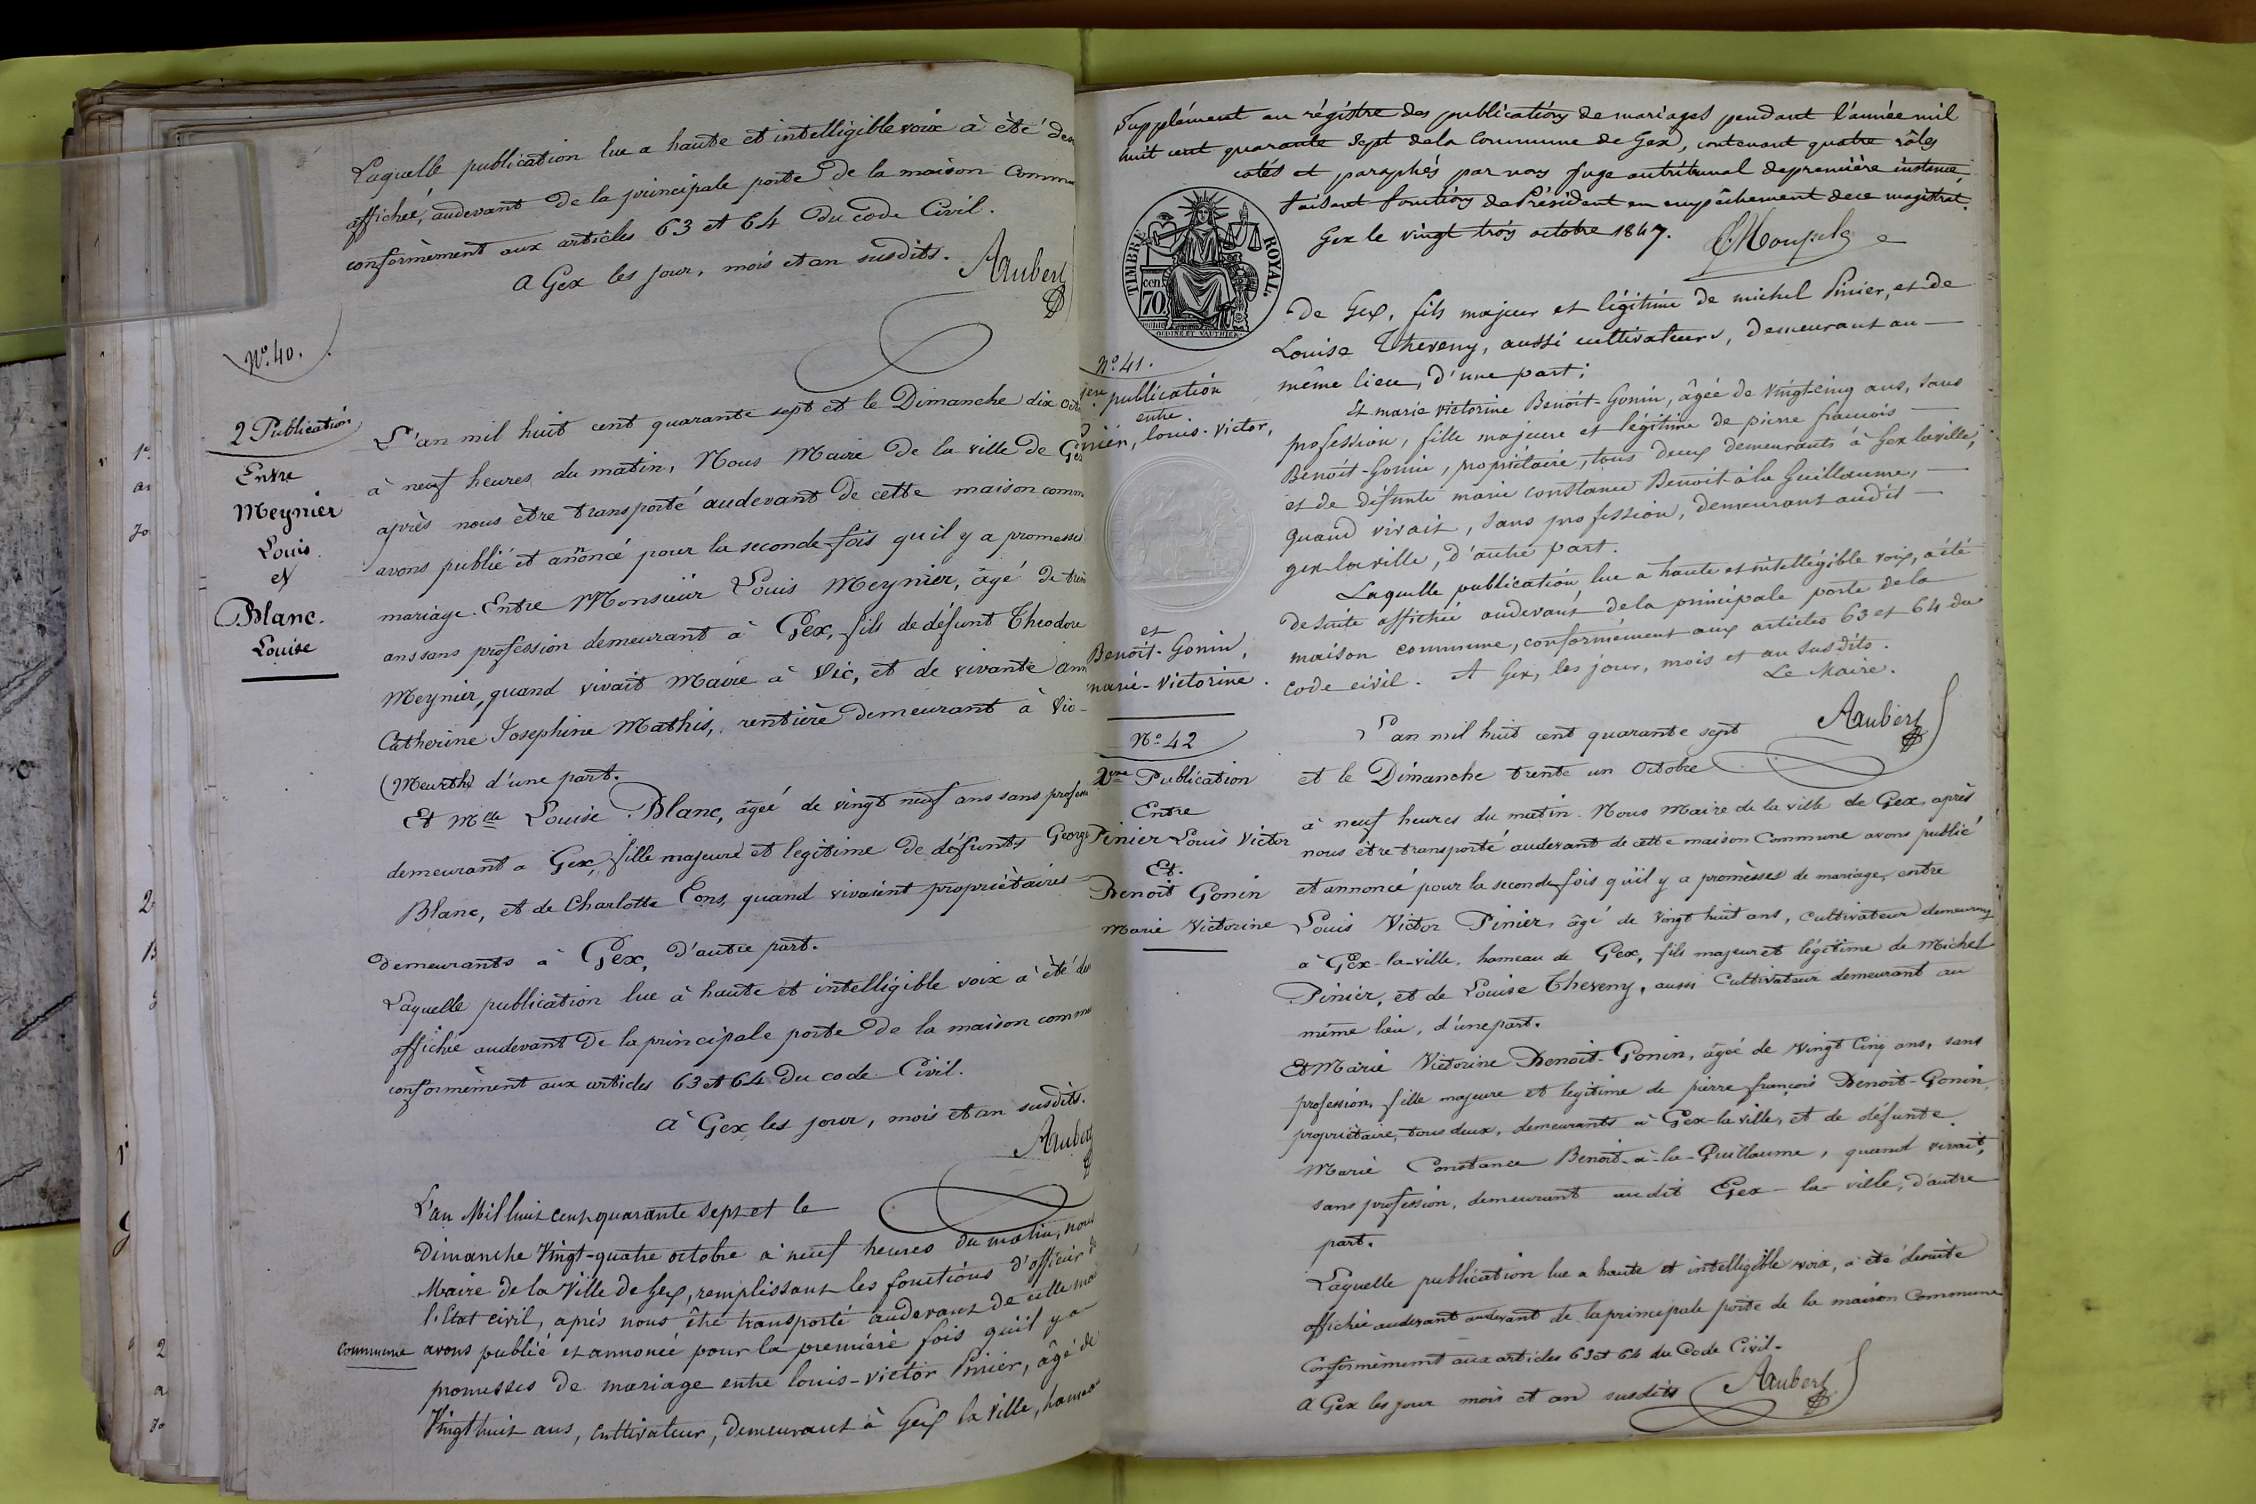 Laquelle publication lue a haute et intelligible voix à été de
affichée, audevant de la principale porte de la maison Commu
conformèment aux articles 63 et 64 du code Civil.
A Gex les jour, mois et an susdits.
Aaubert
N° 40.
2 Publication
Entre
Meynier
Louis
et
Blanc.
Louise
L'an mil huit cent quarante sept et le Dimanche dix oct
à neuf heures du matin, Nous Maire de la ville de Gex
après nous être transporté audevant de cette maison comm
avons publié et annoncé pour la seconde fois qu'il y a promesse
mariage. Entre Monsieur Louis Meynier, âgé de tren
ans sans profession demeurant à Gex, fils de défunt Theodore
Meynier, quand vivait Maire à Vic, et de vivante Ann
Catherine Josephine Mathis, rentière demeurant à Vic-
(Meurthe) d'une part.
Et Mlle Louise Blanc, âgée de vingt neuf ans sans profess
demeurant a Gex, fille majeure et legitime de défunts George
Blanc, et de Charlotte Cons, quand vivaient propriètaires
demeurants à Gex, d'autre part.
Laquelle publication lue à haute et intelligible voix à été de
affichée audevant de la principale porte de la maison comm
conformèment aux articles 63 et 64 du code Civil.
à Gex les jour, mois et an susdits.
Aaubert
L'an Mil huit cent quarante sept et le
Dimanche Vingt-quatre octobre à neuf heures du matin, nous
Maire de la Ville de Gex, remplissant les fonctions d'officier d
l'Etat civil, après nous être transporté audevant de cette mai
commune avons publié et annoncé pour la première fois qu'il y a
promesses de mariage entre louis-victor Pinier, âgé de
Vingt huit ans, cultivateur, demeurant à Gex la ville, hameau
Supplément au régistre des publications de mariages pendant l'année mil
huit cent quarante sept de la Commune de Gex, contenant quatre rôles
cotés et paraphés par nous juge au tribunal de première instance,
faisant fonctions de Président en empêchement de ce magistrat.
Gex le vingt trois octobre 1847.
TIMBRE ROYAL.
cen
70
N° 41.
1ere publication
entre
Pinier, louis-victor,
et
Benoit-Gonin,
marie-victorine.
de Gex, fils majeur et légitime de michel Pinier, et de
Louise Theveny, aussi cultivateurs, demeurant au
même lieu, d'une part;
Et marie victorine Benoit-Gonin, âgée de vingt cinq ans, sans
profession, fille majeure et légitime de pierre francois
Benoit-Gonin, propriétaire, tous deux demeurants à Gex la ville,
et de défunte marie constance Benoit-à la Guillaume,
quand vivait, sans profession, demeurant audit
gex la ville, d'autre part.
Laquelle publication lue a haute et intelligible voix, a été
de suite affichée audevant de la principale porte de la
maison commune, conformément aux articles 63 et 64 du
code civil. A Gex, les jour, mois et an susdits.
Le Maire.
Aaubert
N° 42
2me Publication
Entre
Pinier Louis Victor
Et.
Benoit Gonin
Marie Victorine
L'an mil huit cent quarante sept
et le Dimanche trente un Octobre
à neuf heures du matin. Nous Maire de la ville de Gex, après
nous être transporté audevant de cette maison Commune avons publié
et annoncé pour la seconde fois qu'il y a promèsses de mariage, entre
Louis Victor Pinier, âgé de vingt huit ans, cultivateur demeurant
à Gex-la-ville, hameau de Gex, fils majeur et légitime de Michel
Pinier, et de Louise Theveny, aussi Cultivateur demeurant au
même lieu, d'une part.
Et Marie Victorine Benoit-Gonin, âgée de Vingt Cinq ans, sans
profession, fille majeure et legitime de pierre françois Benoit-Gonin
propriètaire, tous deux, demeurants à Gex-la ville, et de défunte
Marie Constance Benoit-à-la-Guillaume, quand vivait,
sans profession, demeurant audit Gex-la-ville, d'autre
part.
Laquelle publication lue a haute et intelligible voix, a été desuite
affichée audevant audevant de la principale porte de la maison Commune
Conformèment aux articles 63 et 64 du Code Civil.
A Gex les jour mois et an susdits
Aaubert